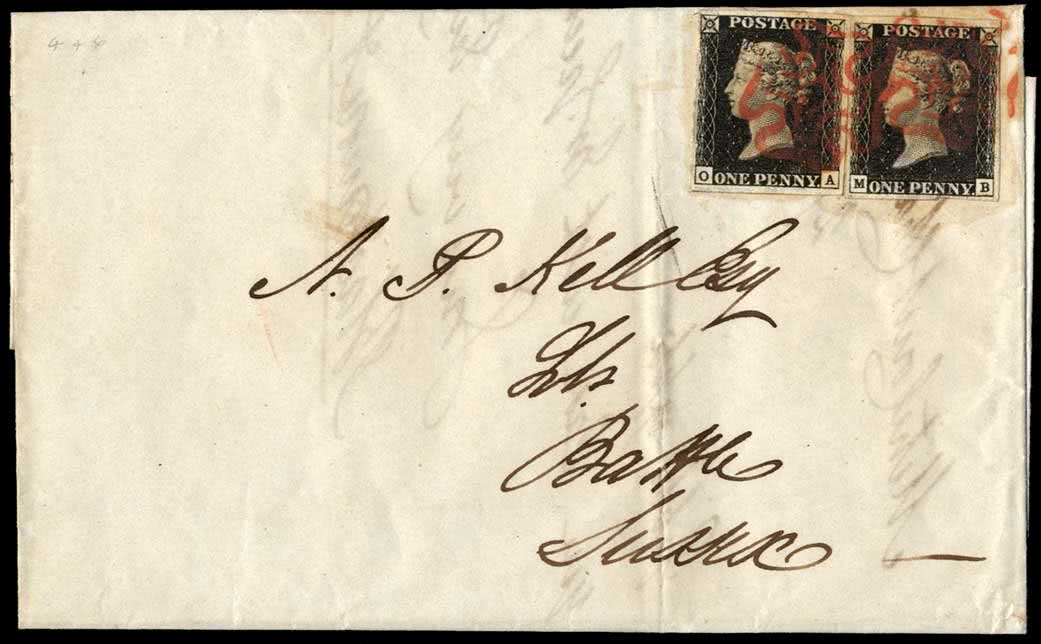 4 + 8
POSTAGE
O ONE PENNY. A
POSTAGE
M ONE PENNY. B
N. P. Kell Esq
Battle
Sussex